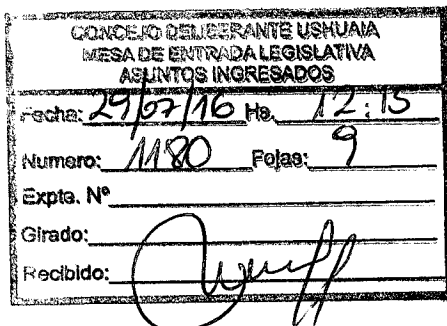 CONCEJO DELIBERANTE USHUAIA
MESA DE ENTRADA LEGISLATIVA
ASUNTOS INGRESADOS
Fecha: 29/07/16 Hs. 12:15
Numero: 1180 Fojas: 9
Expte. Nº
Girado:
Recibido: